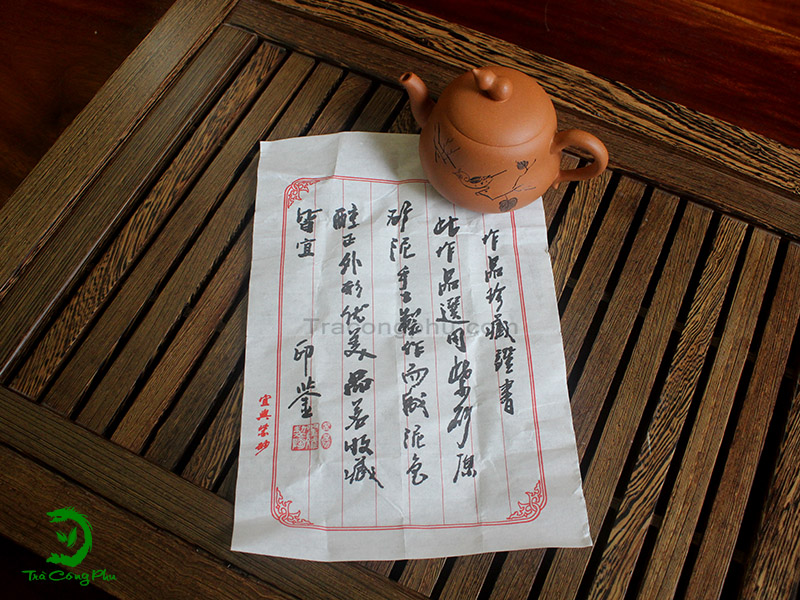 作品珍藏證書
此作品選用紫砂原
砂泥手工製作而成泥色
醇正外形优美品茗收藏
皆宜
印鉴
宜興紫砂
Tracongphu.com
Trà Công Phu